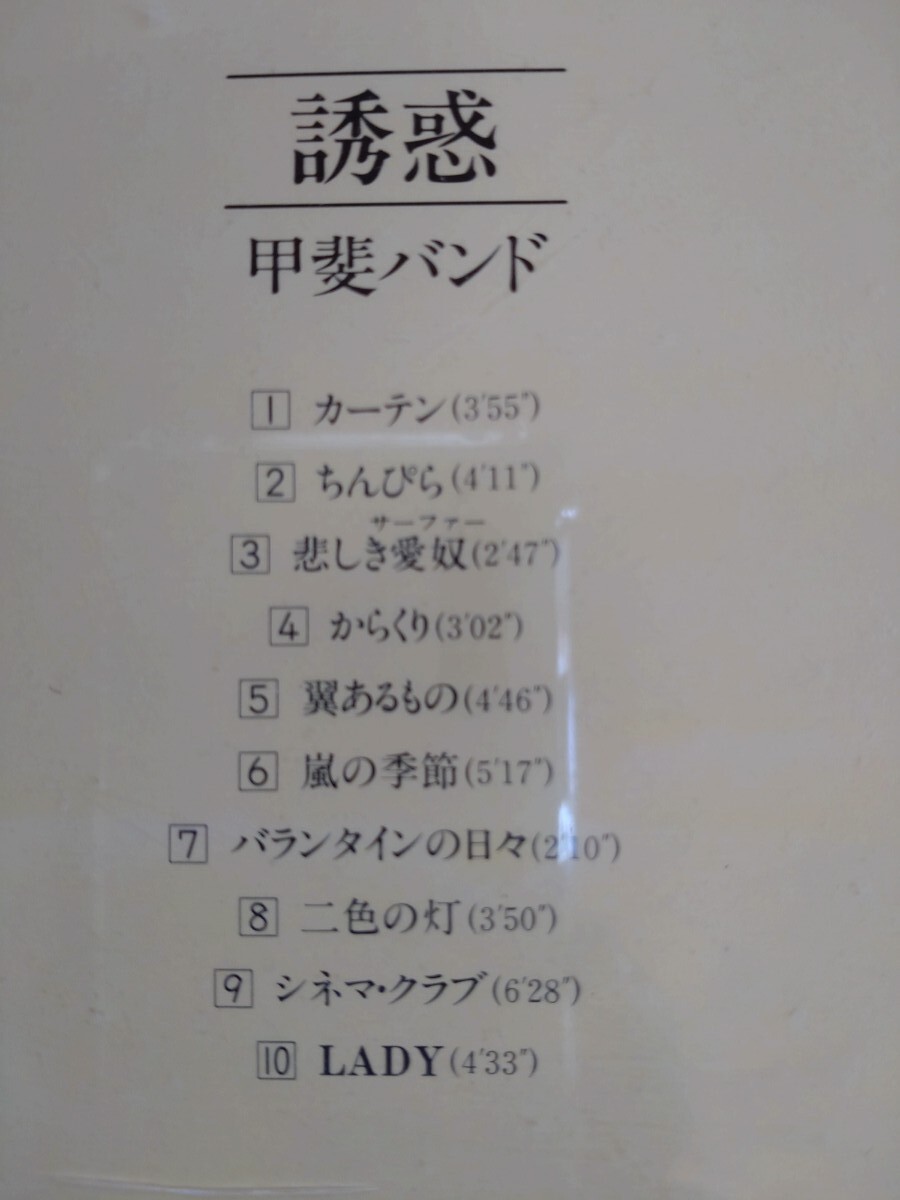 誘惑
甲斐バンド
1 カーテン(3'55")
2 ちんぴら(4'11")
サーファー
3 悲しき愛奴(2'47")
4 からくり(3'02")
5 翼あるもの(4'46")
6 嵐の季節(5'17")
7 バランタインの日々(2'10")
8 二色の灯(3'50")
9 シネマ・クラブ(6'28")
10 LADY(4'33")